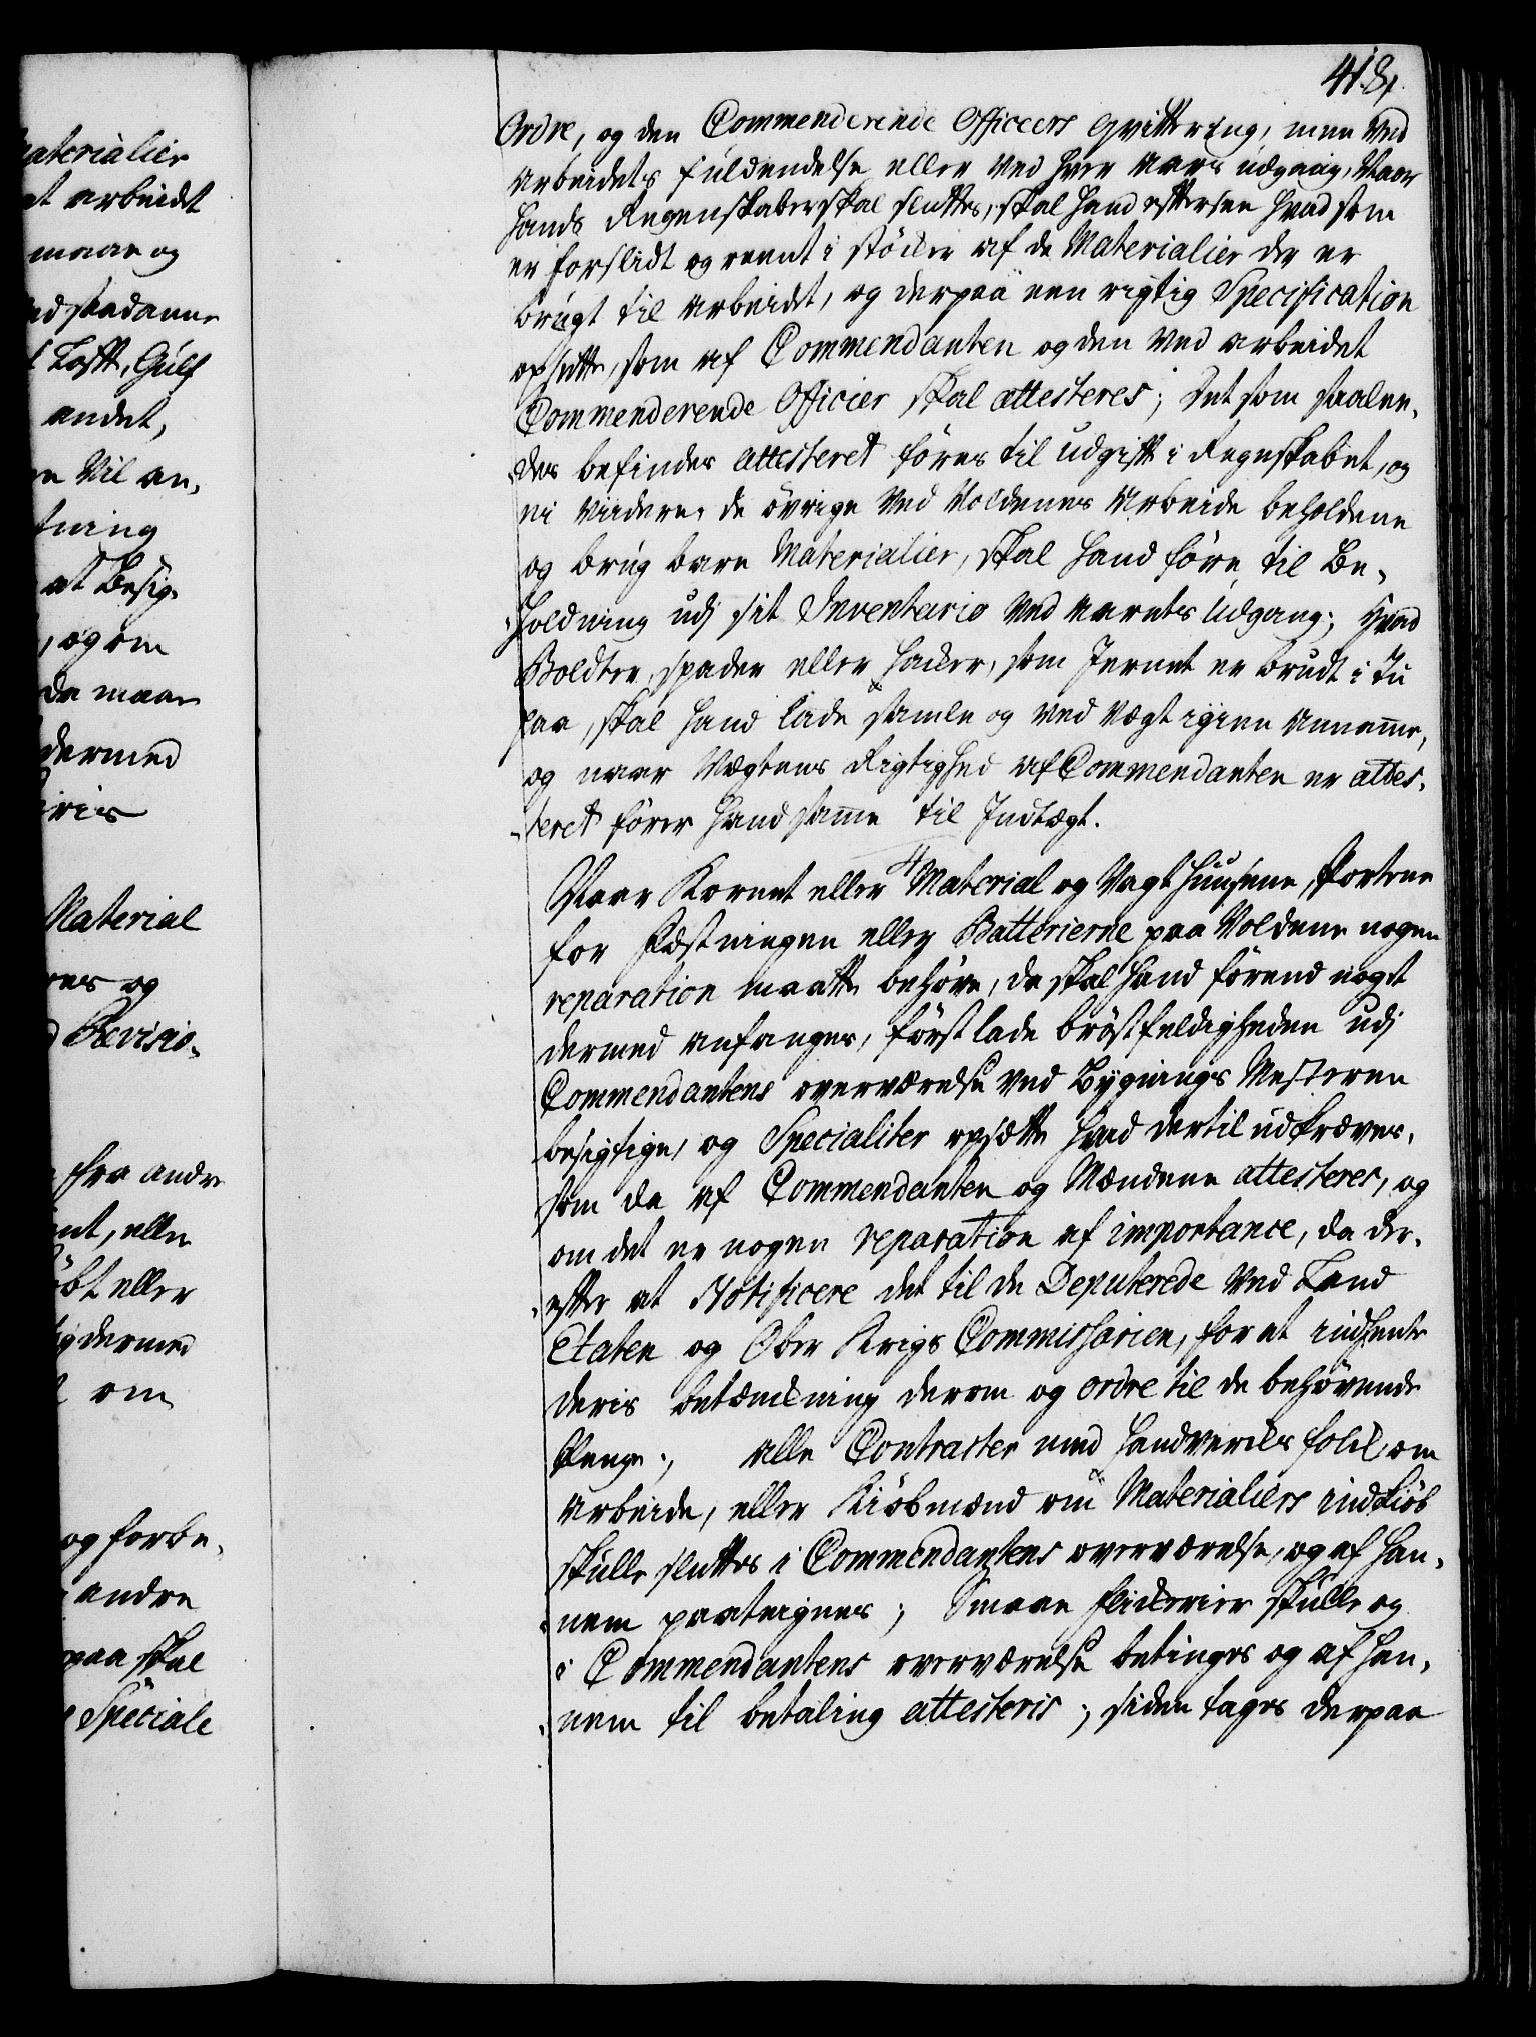 aterialier
t arbeidt
maae og
ed saadanne
Loft, Gulf
andet,
Vil an,
tning
at Besig,
, og om
da maae
dermed
iris
Material
res og
Revisio,
fra andre
nt, eller
öbt eller
dermed
om
og forbe,
andre
paa skal
Speciale
418.
Ordre, og den Commenderende Officeers Qvittering, men ved
Arbeidets fuldendelse eller ved hver Aars udgang, Naar
hands Regenskaber skal sluttes, skal hand eftersee hvad som
er forslidt og reent i stöcker af de Materialier der er
brugt til arbeidet, og derpaa een rigtig Specification
opsætte, som af Commendanten og den ved arbeidet
Commenderende Officier skal attesteres; Det som saalee,
des befindes attesteret föres til udgift i Regnskabet, og
ei viidere, de övrige ved Voldenes Arbeide beholdene
og brugbare Materialier, skal hand före til Be,
holdning udj sit Inventario ved aarets Udgang; Hvad
Boldter, Spader eller hacker, som Jernet er brudt i tu
paa, skal hand lade samle og ved vægt igien Annamme,
og naar Vægtens Rigtighed af Commendanten er attes,
teret förer hand samme til Indtægt.
Naar Kornet eller Material og Vagt Huusene, Portene
for Fæstningen eller Batterierne paa Voldene nogen
reparation maatte behöve, da skal hand förend noget
dermed anfanges, först lade bröstfeldigheden udj
Commendantens overværelse ved Bygnings Mesteren
besigtige, og Specialiter opsætte hvad dertil udkræves,
som da af Commendanten og Mændene attesteres, og
om det er nogen reparation af importance, da der,
efter at Notificere det til de Deputerede ved Land
Etaten og Ober Krigs Commissarien, for at indhente
deris betænckning derom og ordre til de behövende
Penge; Alle Contracter med Handvercks folck, om
Arbeide, eller Kiöbmænd om Materialiers indkiöb
skulle sluttes i Commendantens overværelse, og af han,
nem paateignes; Smaae flickerier skulle og
i Commendantens overværelse betinges og af han,
nem til betaling attesteris; siden tages derpaa